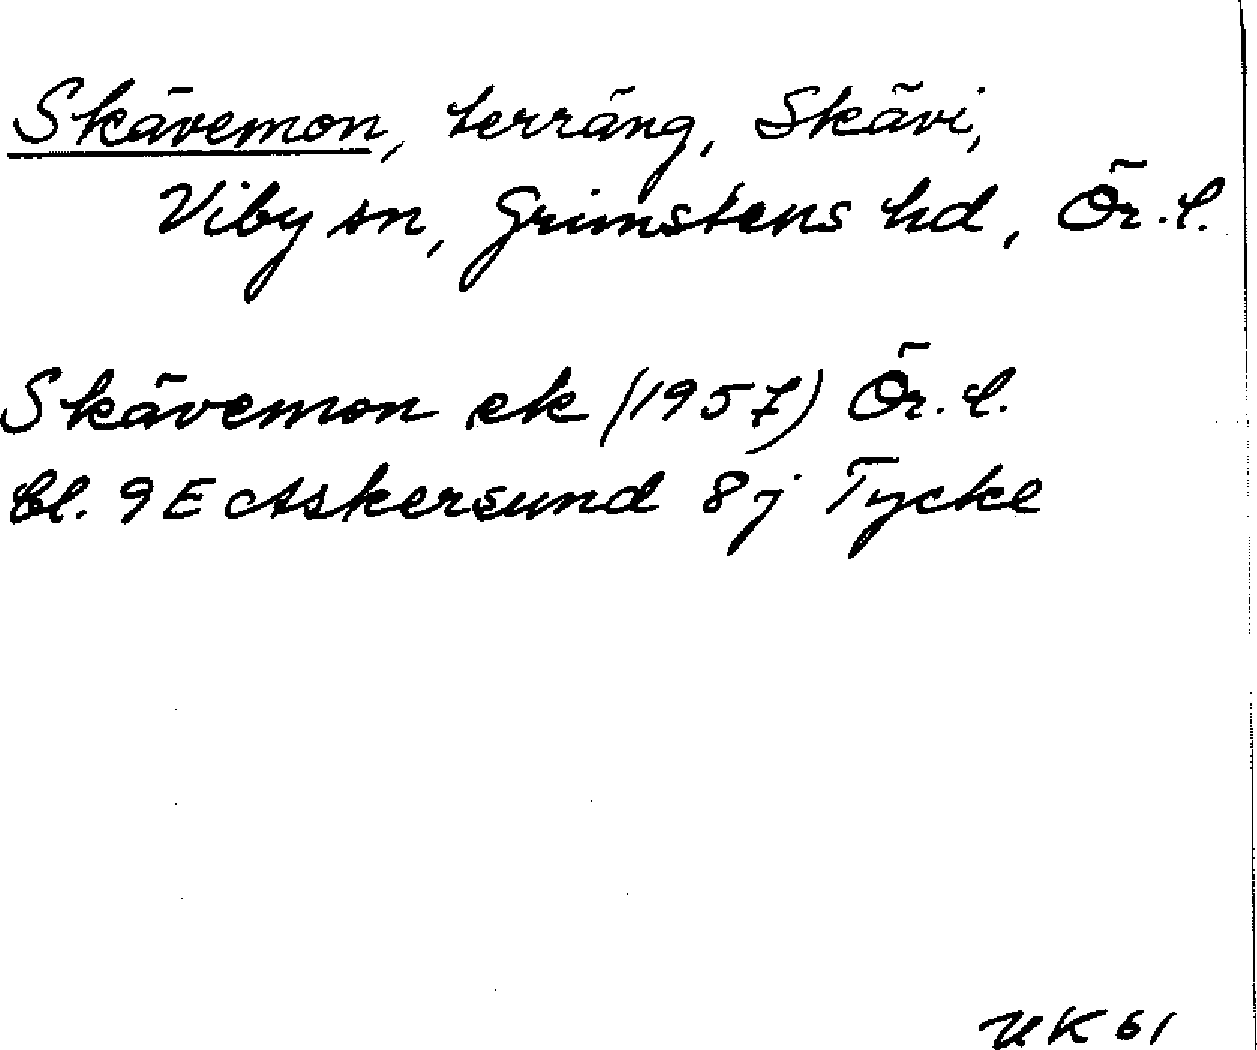 Skävemon, terräng, Skävi,
Viby sn, Grimstens hd, Ör.l.
Skävemon ek (1957) Ör.l.
bl. 9E Askersund 8j Tycke
UK 61